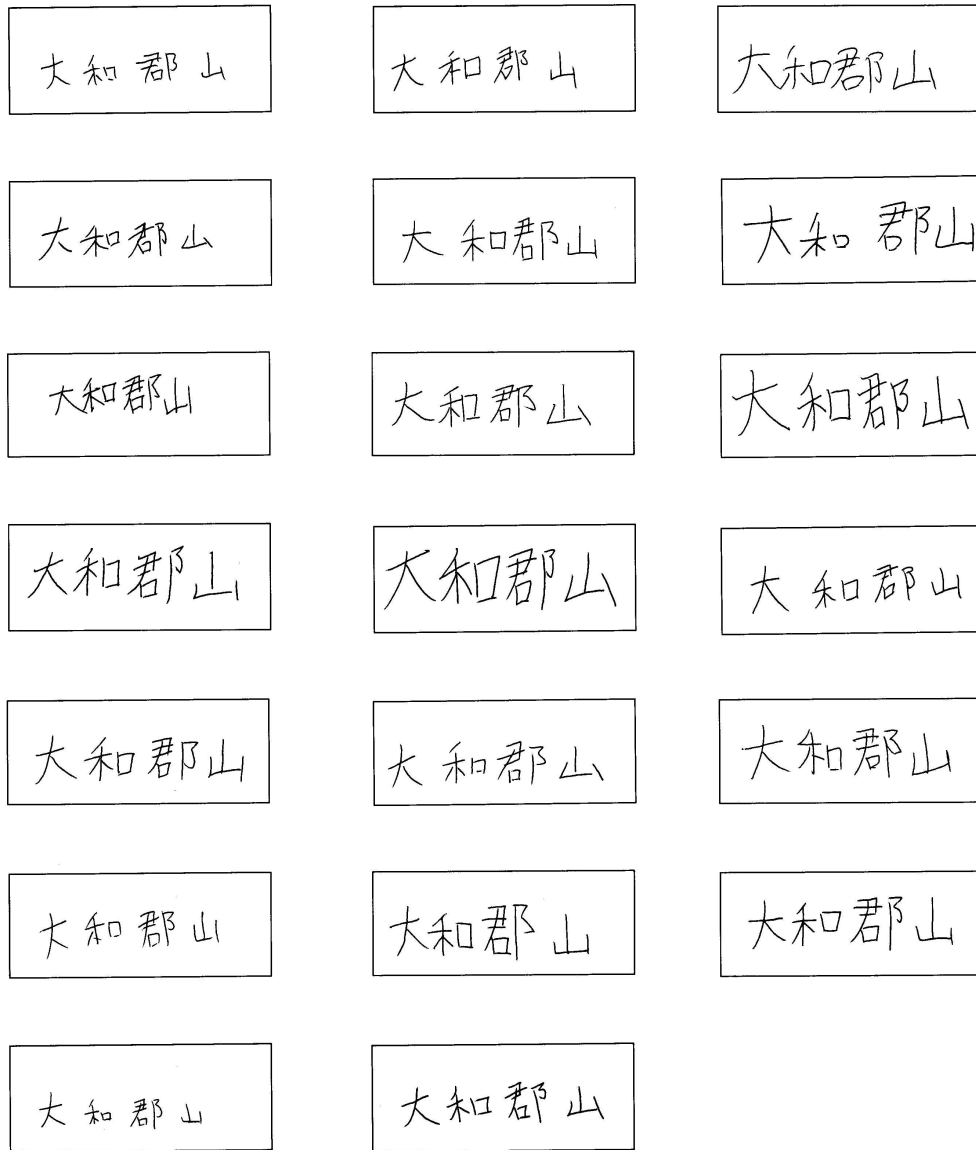 大和郡山 大和郡山 大和郡山
大和郡山 大和郡山 大和郡山
大和郡山 大和郡山 大和郡山
大和郡山 大和郡山 大和郡山
大和郡山 大和郡山 大和郡山
大和郡山 大和郡山 大和郡山
大和郡山 大和郡山